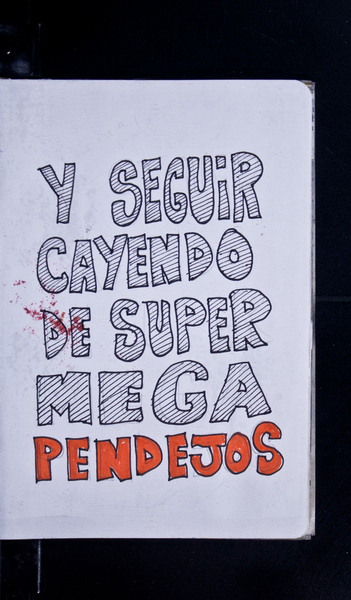 Y SEGUiR
CAYENDO
DE SUPER
MEGA
PENDEJOS